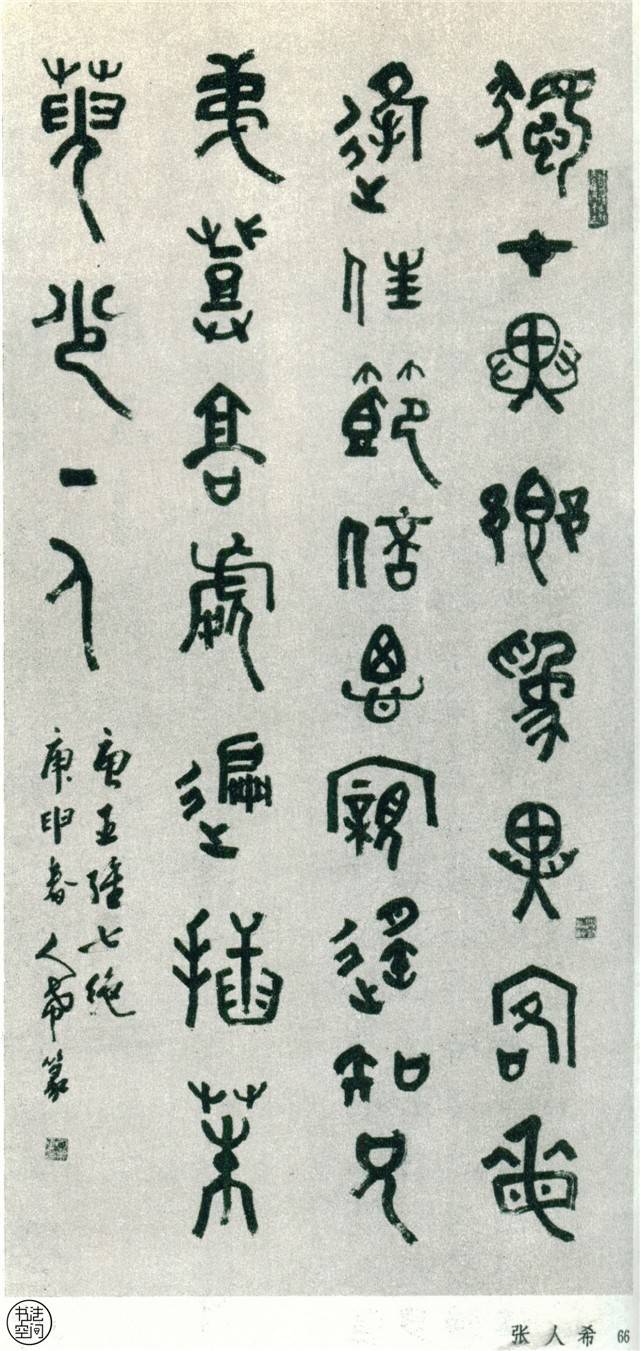 獨在異鄉為異客每
逢佳節倍思親遙知兄
弟登高處遍插茱
萸少一人
唐王維七絕
庚申春人希篆
张人希 66
书法空间